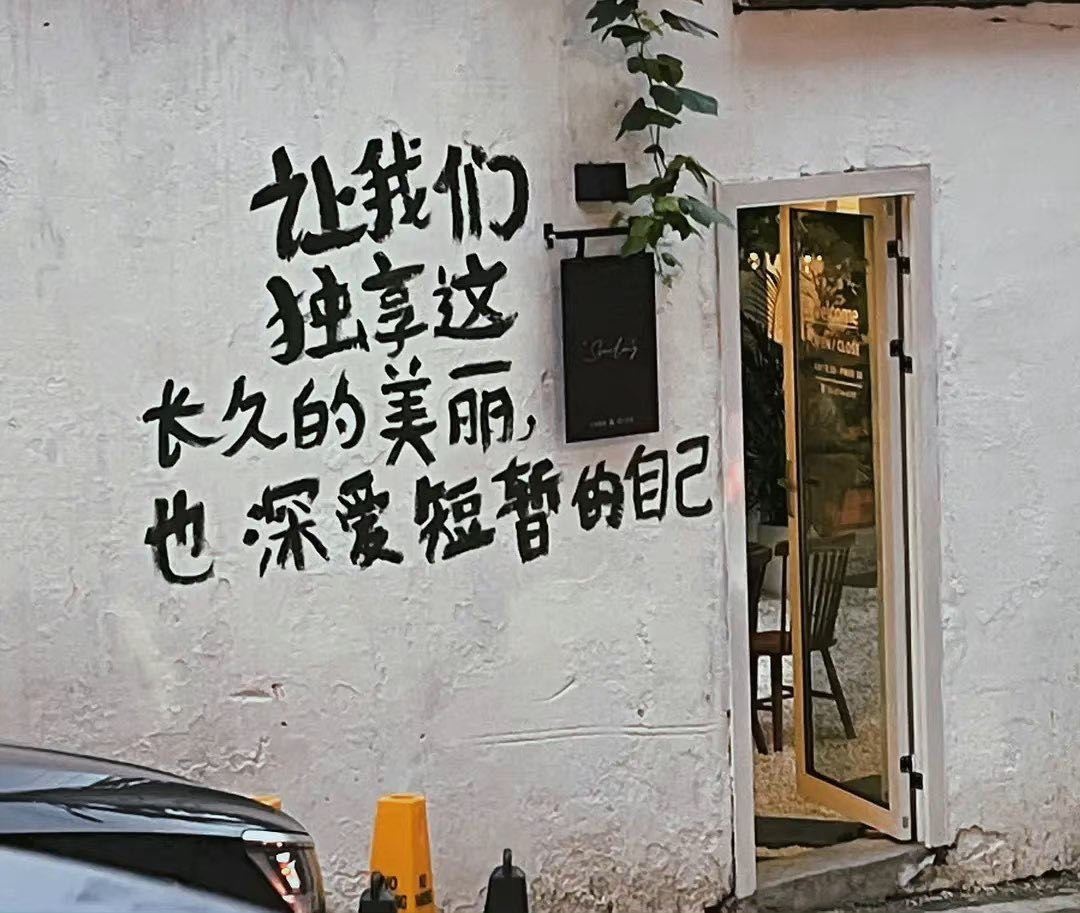 让我们
独享这
长久的美丽,
也深爱短暂的自己
welcome
OPEN / CLOSE
NO
NO